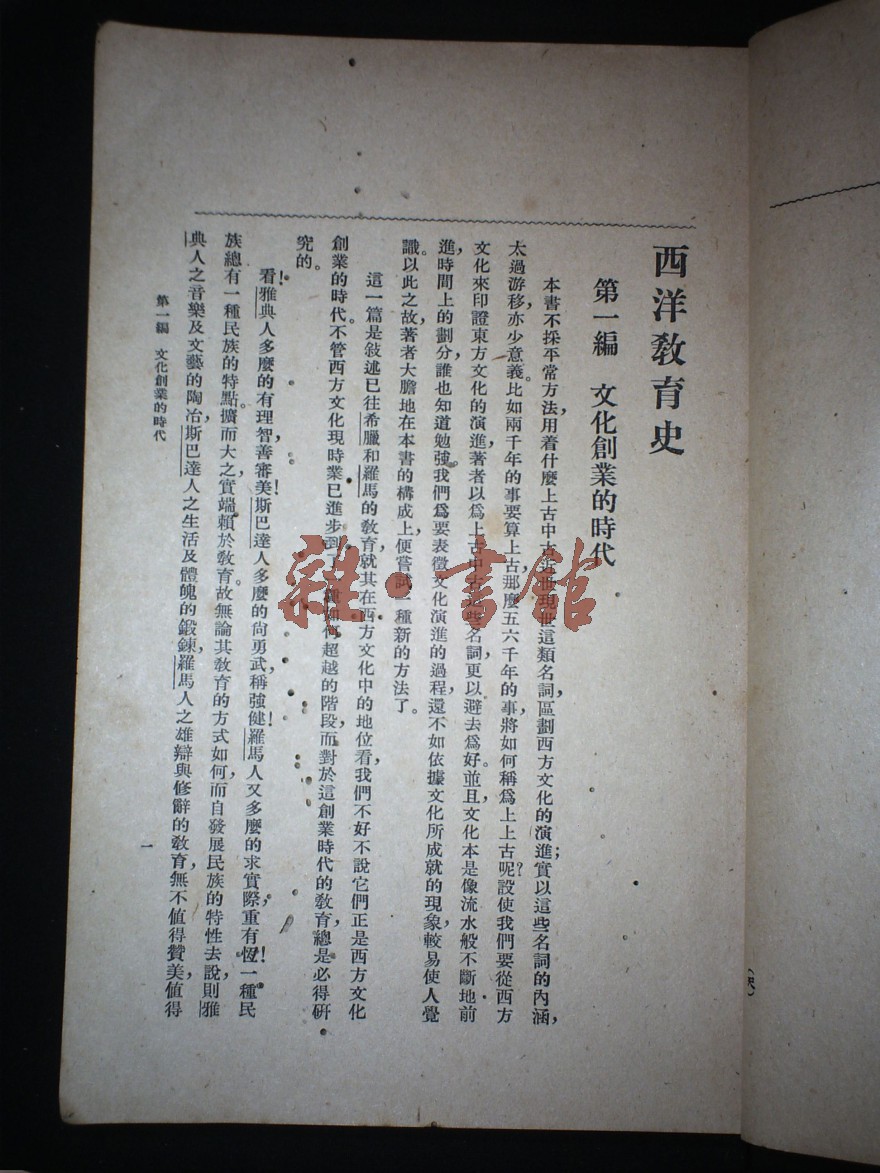 西洋教育史
第一編　文化創業的時代
本書不採平常方法，用着什麼上古中古近世現世這類名詞，區劃西方文化的演進；實以這些名詞的內涵，
太過游移，亦少意義。比如兩千年的事要算上古，那麼五六千年的事，將如何稱爲上上古呢？設使我們要從西方
文化來印證東方文化的演進，著者以爲上古中古這些名詞，更以避去爲好。並且，文化本是像流水般不斷地前
進，時間上的劃分，誰也知道勉強。我們爲要表徵文化演進的過程，還不如依據文化所成就的現象，較易使人覺
識。以此之故，著者大膽地在本書的構成上，便嘗試一種新的方法了。
這一篇是敍述已往希臘和羅馬的敎育，就其在西方文化中的地位看，我們不好不說它們正是西方文化
創業的時代。不管西方文化現時業已進步到了如何超越的階段，而對於這創業時代的敎育，總是必得研
究的。
看！雅典人多麼的有理智，善審美！斯巴達人多麼的尙勇武，稱強健！羅馬人又多麼的求實際，重有恆！一種民
族總有一種民族的特點。擴而大之，實端賴於敎育。故無論其敎育的方式如何，而自發展民族的特性去說，則雅
典人之音樂及文藝的陶冶，斯巴達人之生活及體魄的鍛鍊，羅馬人之雄辯與修辭的敎育，無不值得贊美，值得
第一編　文化創業的時代
一
雜·書館